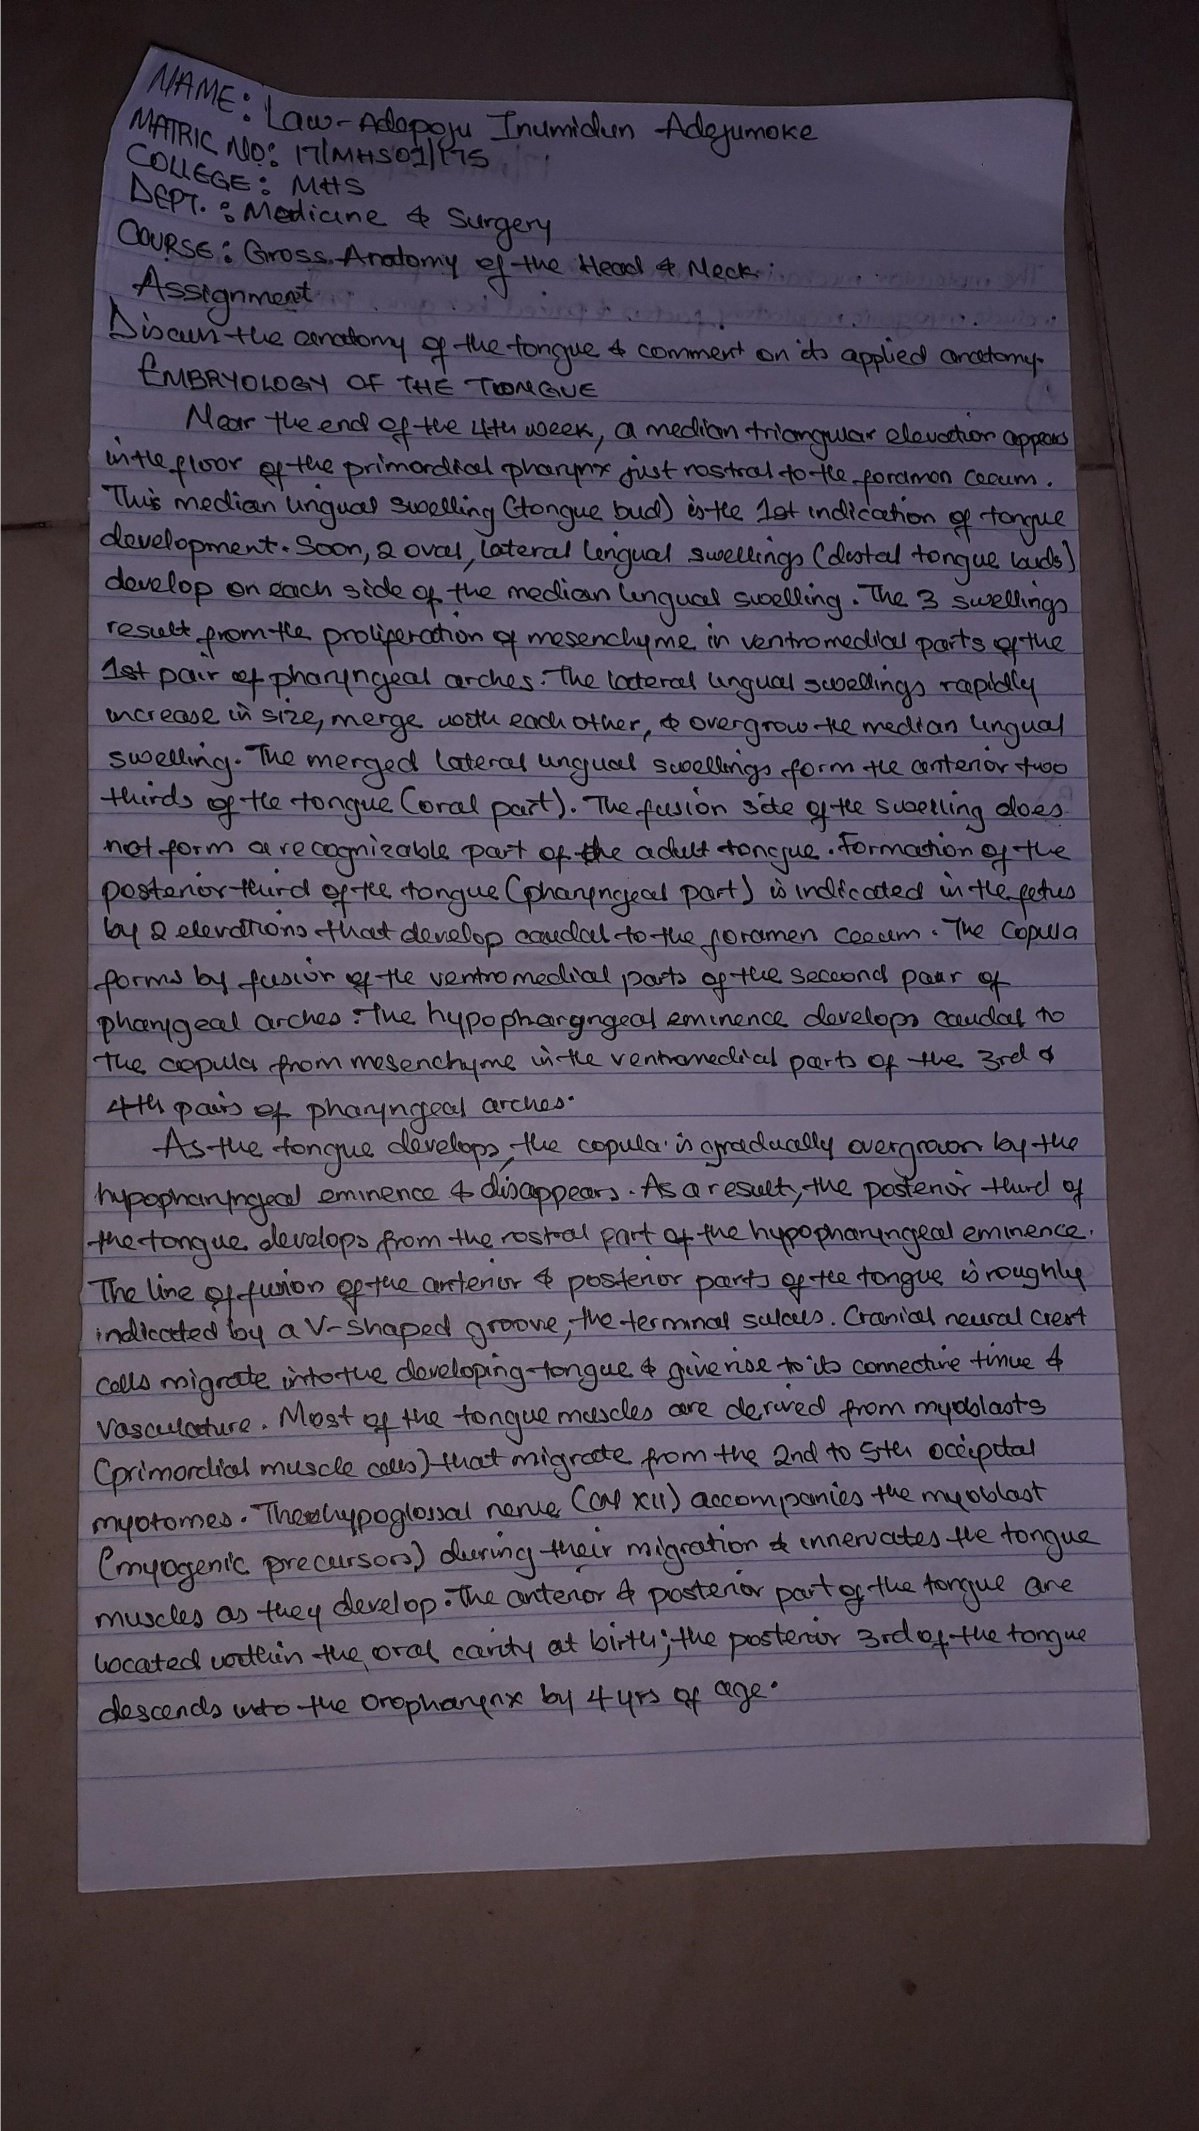 NAME: Law-Adepoju Inumidun Adejumoke
MATRIC NO: 17/MHS01/175
COLLEGE: MHS
DEPT.: Medicine & Surgery
COURSE: Gross Anatomy of the Head & Neck.
Assignment
Discuss the anatomy of the tongue & comment on its applied anatomy.
EMBRYOLOGY OF THE TONGUE
Near the end of the 4th week, a median triangular elevation appears
in the floor of the primordial pharynx just rostral to the foramen cecum.
This median lingual swelling (tongue bud) is the 1st indication of tongue
development. Soon, 2 oval, lateral lingual swellings (distal tongue buds)
develop on each side of the median lingual swelling. The 3 swellings
result from the proliferation of mesenchyme in ventromedial parts of the
1st pair of pharyngeal arches. The lateral lingual swellings rapidly
increase in size, merge with each other, & overgrow the median lingual
swelling. The merged lateral lingual swellings form the anterior two
thirds of the tongue (oral part). The fusion site of the swelling does
not form a recognizable part of the adult tongue. Formation of the
posterior third of the tongue (pharyngeal part) is indicated in the fetus
by 2 elevations that develop caudal to the foramen cecum. The copula
forms by fusion of the ventromedial parts of the second pair of
pharygeal arches. The hypopharyngeal eminence develops caudal to
the copula from mesenchyme in the ventromedial parts of the 3rd &
4th pairs of pharyngeal arches.
As the tongue develops, the copula is gradually overgrown by the
hypopharyngeal eminence & disappears. As a result, the posterior third of
the tongue develops from the rostral part of the hypopharyngeal eminence.
The line of fusion of the anterior & posterior parts of the tongue is roughly
indicated by a V-shaped groove, the terminal sulcus. Cranial neural crest
cells migrate into the developing tongue & give rise to its connective tissue &
vasculature. Most of the tongue muscles are derived from myoblasts
(primordial muscle cells) that migrate from the 2nd to 5th occipital
myotomes. The hypoglossal nerve (CN XII) accompanies the myoblast
(myogenic precursors) during their migration & innervates the tongue
muscles as they develop. The anterior & posterior part of the tongue are
located within the oral cavity at birth; the posterior 3rd of the tongue
descends into the oropharynx by 4 yrs of age.